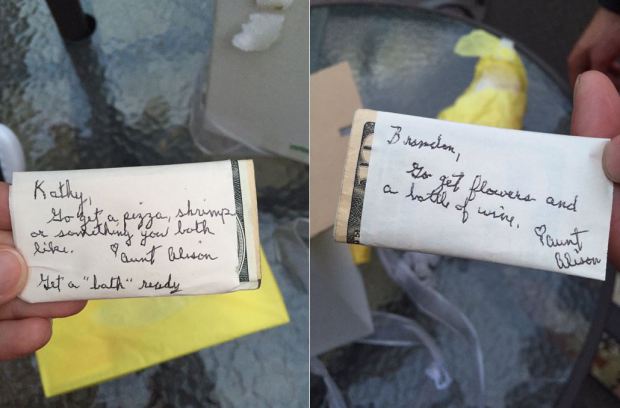 Kathy,
Go get a pizza, shrimp
or something you both
like. ♡ Aunt Alison
Get a "bath" ready
Brandon,
Go get flowers and
a bottle of wine.
♡ Aunt
Alison